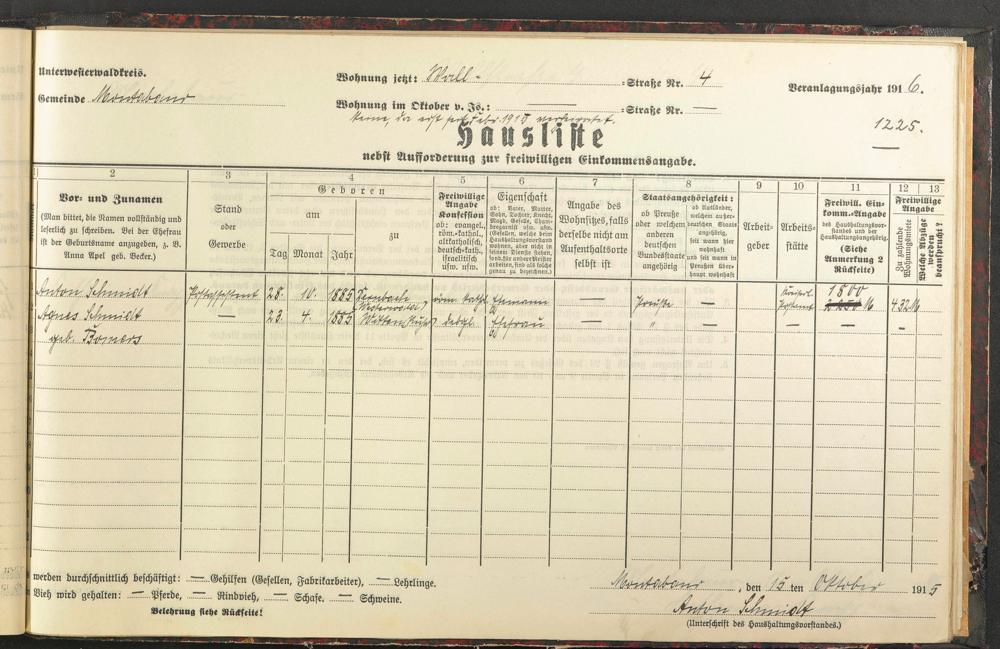 Unterwesterwaldkreis.
Gemeinde Montabaur
Wohnung jetzt: Wall- =Straße Nr. 4
Veranlagungsjahr 1916.
Wohnung im Oktober v. Js.: — =Straße Nr. —
keine, da erst seit Febr. 1915 verheiratet.
1225.
Hausliste
nebst Aufforderung zur freiwilligen Einkommensangabe.
2 3 4 5 6 7 8 9 10 11 12 13
Vor- und Zunamen
(Man bittet, die Namen vollständig und
leserlich zu schreiben. Bei der Ehefrau
ist der Geburtsname anzugeben, z. B.
Anna Apel geb. Becker.)
Stand
oder
Gewerbe
Geboren
am
zu
Tag Monat Jahr
Freiwillige
Angabe
Konfession
ob: evangel.,
röm.-kathol.,
altkatholisch,
deutsch-kath.,
israelitisch
usw. usw.
Eigenschaft
ob: Vater, Mutter,
Sohn, Tochter, Knecht,
Magd, Geselle, Cham-
bregarnist usw. usw.
(Gesellen, welche beim
Haushaltungsvorstand
wohnen, aber nicht in
seinem Dienste stehen,
sind als solche
genau zu bezeichnen.)
Angabe des
Wohnsitzes, falls
derselbe nicht am
Aufenthaltsorte
selbst ist
Staatsangehörigkeit:
ob Preuße
oder welchem
anderen
deutschen
Bundesstaate
angehörig
ob Ausländer,
welchem außer-
deutschen Staate
angehörig,
seit wann hier
wohnhaft
und
seit wann in
Preußen über-
haupt wohnhaft
Arbeit-
geber
Arbeits-
stätte
Freiwill. Ein-
komm.-Angabe
des Haushaltungsvor-
standes und der
Haushaltungsangehörig.
(Siehe
Anmerkung 2
Rückseite)
Freiwillige
Angabe
Zu zahlende
Wohnungsmiete
Welche Abzüge
werden
beansprucht?
Anton Schmidt Postassistent 28. 10. 1885 röm. kathl. Ehemann — Preuße — Postamt 1800 2250 M 432 M
Agnes Schmidt — 23. 4. 1885 Ehefrau — " — — — — — —
geb. Bomers
werden durchschnittlich beschäftigt: — Gehilfen (Gesellen, Fabrikarbeiter), — Lehrlinge.
Vieh wird gehalten: — Pferde, — Rindvieh, — Schafe. — Schweine.
Belehrung siehe Rückseite!
Montabaur, den 15 ten Oktober 1915
Anton Schmidt
(Unterschrift des Haushaltungsvorstandes.)